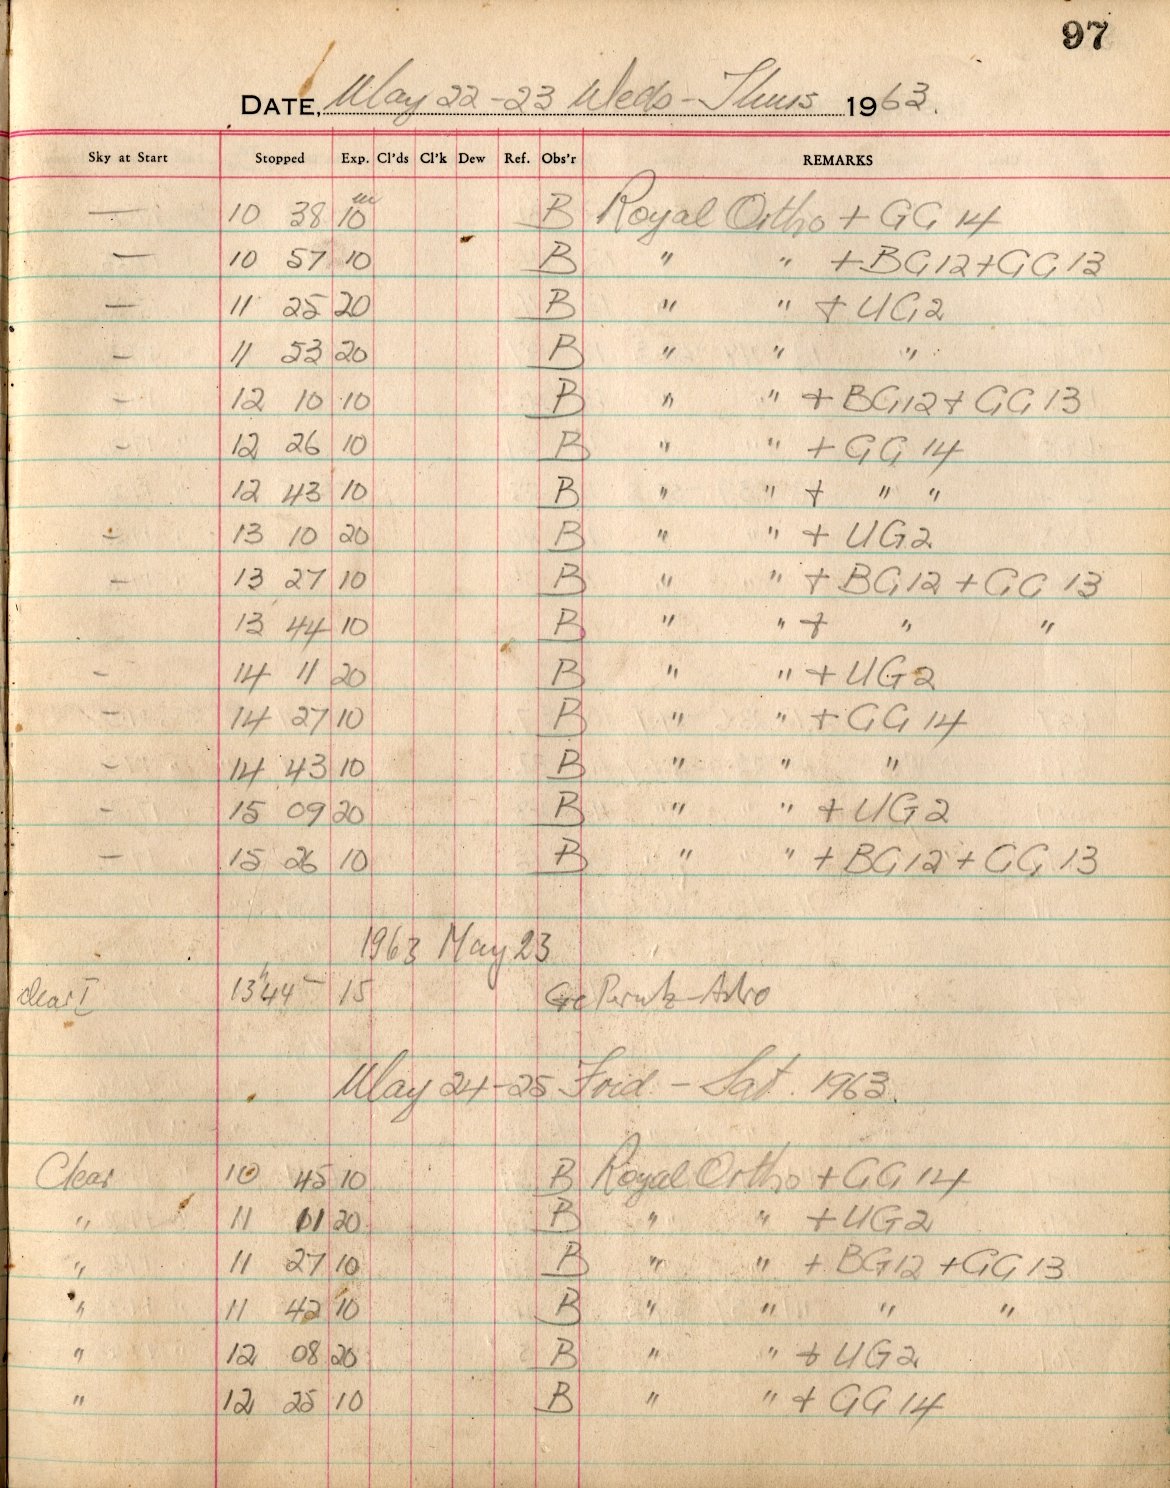 97
DATE, May 22-23 Weds-Thurs 1963.
Sky at Start Stopped Exp. Cl'ds Cl'k Dew Ref. Obs'r REMARKS
— 10 38 10m B Royal Ortho + GG 14
— 10 57 10 B " " + BG12 + GG 13
— 11 25 20 B " " + UG2
— 11 53 20 B " " "
— 12 10 10 B " " + BG12 + GG 13
— 12 26 10 B " " + GG 14
12 43 10 B " " + " "
— 13 10 20 B " " + UG2
— 13 27 10 B " " + BG12 + GG 13
13 44 10 B " " + " "
— 14 11 20 B " " + UG2
— 14 27 10 B " " + GG 14
— 14 43 10 B " " "
— 15 09 20 B " " + UG2
— 15 26 10 B " " + BG12 + GG 13
1963 May 23
clear I 13h44 — 15 Perutz-Astro
May 24-25 Frid - Sat. 1963.
Clear 10 45 10 B Royal Ortho + GG 14
" 11 01 20 B " " + UG2
" 11 27 10 B " " + BG12 + GG 13
" 11 42 10 B " " " "
" 12 08 20 B " " + UG2
" 12 25 10 B " " + GG 14